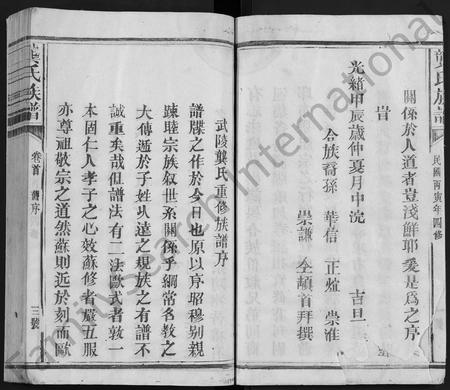 龔氏族譜
民國丙寅年四修
關係於人道者豈淺鮮耶爰是為之序
旹
光緒甲辰歲仲夏月中浣 吉旦
合族裔孫 華信 正煊 崇淮 崇謙 仝頓首拜撰
武陵龔氏重修族譜序
譜牒之作於今日也原以序昭穆别親
疎睦宗族敘世系關係乎綱常名教之
大傳遞於子姓久遠之規族之有譜不
誠重矣哉但譜法有二法歐式者敦一
本固仁人孝子之心效蘇修者嚴五服
亦尊祖敬宗之道然蘇則近於刻而歐
龔氏族譜
卷首 舊序
三號
FamilySearch International